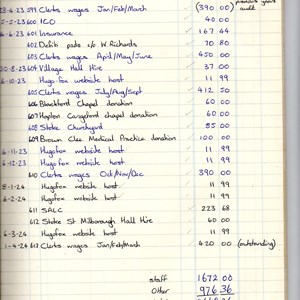 previous years
audit
28-6-23 599 Clerks wages Jan/Feb/March (390 00)
5-5-23 600 ICO 40 00
6-6-23 601 Insurance 167 44
602 pads c/o W. Richards 70 80
603 Clerks wages April/May/June 450 00
30-8-23 604 Village Hall Hire 37 00
6-10-23 Hugofox website host 11 99
605 Clerks wages July/Aug/Sept 412 50
606 Blackford Chapel donation 60 00
607 Hopton Cangeford chapel donation 60 00
608 Stoke Churchyard 55 00
609 Brown Clee Medical Practice donation 100 00
6-11-23 Hugofox website host 11 99
6-12-23 Hugofox website host 11 99
610 Clerks wages Oct/Nov/Dec 390 00
8-1-24 Hugofox website host 11 99
6-2-24 Hugofox website host 11 99
611 SALC 223 68
612 Stoke St Milborough Hall Hire 60 00
6-3-24 Hugofox website host 11 99
1-4-24 613 Clerks wages Jan/Feb/March 420 00 (outstanding)
staff 1672 00
Other 976 36